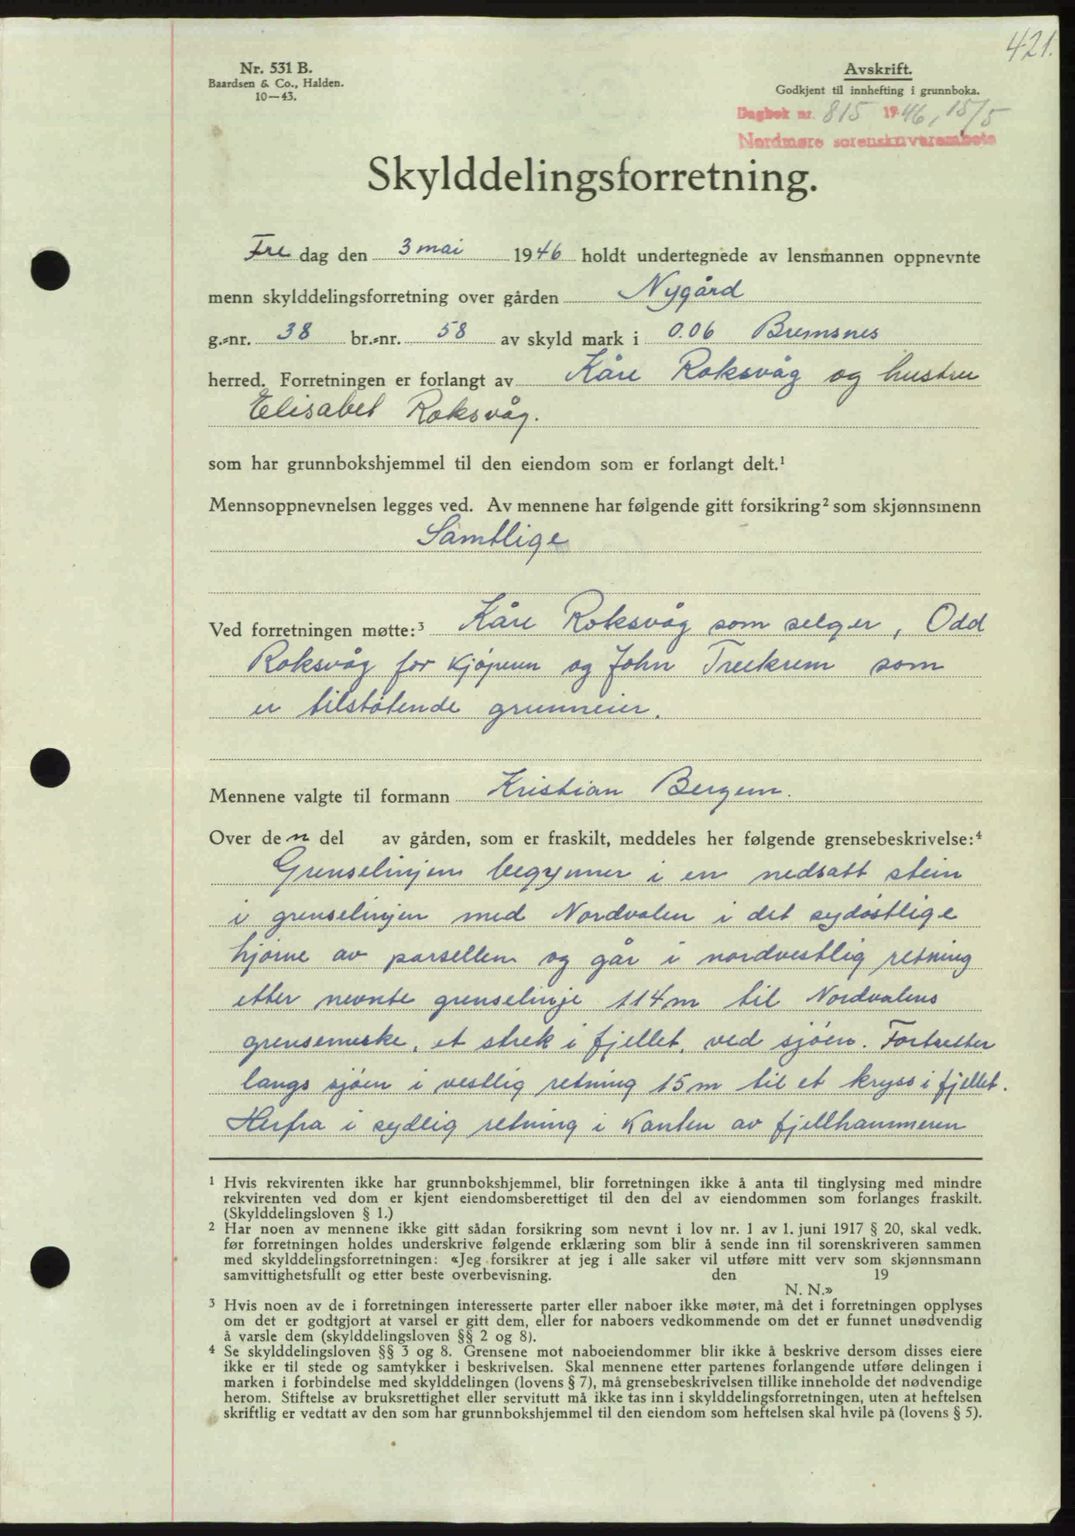 421.
Nr. 531 B.
Baardsen & Co., Halden.
10—43.
Avskrift.
Godkjent til innhefting i grunnboka.
Dagbok nr. 815 1946, 15/5
Nordmøre sorenskriverembete
Skylddelingsforretning.
Fre dag den 3 mai 1946 holdt undertegnede av lensmannen oppnevnte
menn skylddelingsforretning over gården Nygård
g.-nr. 38 br.-nr. 58 av skyld mark i 0.06 Bremsnes
herred. Forretningen er forlangt av Kåre Roksvåg og hustru
Elisabet Roksvåg.
som har grunnbokshjemmel til den eiendom som er forlangt delt.¹
Mennsoppnevnelsen legges ved. Av mennene har følgende gitt forsikring² som skjønnsmenn
Samtlige
Ved forretningen møtte:³ Kåre Roksvåg som selger, Odd
Roksvåg for kjøperen og John Treekrem som
er tilstøtende grunneier.
Mennene valgte til formann Kristian Bergem.
Over den del av gården, som er fraskilt, meddeles her følgende grensebeskrivelse:⁴
Grenselinjen begynner i en nedsatt stein
i grenselinjen med Nordvalen i det sydøstlige
hjørne av parsellen og går i nordvestlig retning
etter nevnte grenselinje 114 m til Nordvalens
grensemerke, et strek i fjellet, ved sjøen. Fortsetter
langs sjøen i vestlig retning 15 m til et kryss i fjellet.
Herfra i sydlig retning i Kanten av fjellhammeren
¹ Hvis rekvirenten ikke har grunnbokshjemmel, blir forretningen ikke å anta til tinglysing med mindre
rekvirenten ved dom er kjent eiendomsberettiget til den del av eiendommen som forlanges fraskilt.
(Skylddelingsloven § 1.)
² Har noen av mennene ikke gitt sådan forsikring som nevnt i lov nr. 1 av 1. juni 1917 § 20, skal vedk.
før forretningen holdes underskrive følgende erklæring som blir å sende inn til sorenskriveren sammen
med skylddelingsforretningen: «Jeg forsikrer at jeg i alle saker vil utføre mitt verv som skjønnsmann
samvittighetsfullt og etter beste overbevisning. den 19
N. N.»
³ Hvis noen av de i forretningen interesserte parter eller naboer ikke møter, må det i forretningen opplyses
om det er godtgjort at varsel er gitt dem, eller for naboers vedkommende om det er funnet unødvendig
å varsle dem (skylddelingsloven §§ 2 og 8).
⁴ Se skylddelingsloven §§ 3 og 8. Grensene mot naboeiendommer blir ikke å beskrive dersom disses eiere
ikke er til stede og samtykker i beskrivelsen. Skal mennene etter partenes forlangende utføre delingen i
marken i forbindelse med skylddelingen (lovens § 7), må grensebeskrivelsen tillike inneholde det nødvendige
herom. Stiftelse av bruksrettighet eller servitutt må ikke tas inn i skylddelingsforretningen, uten at heftelsen
skriftlig er vedtatt av den som har grunnbokshjemmel til den eiendom som heftelsen skal hvile på (lovens § 5).